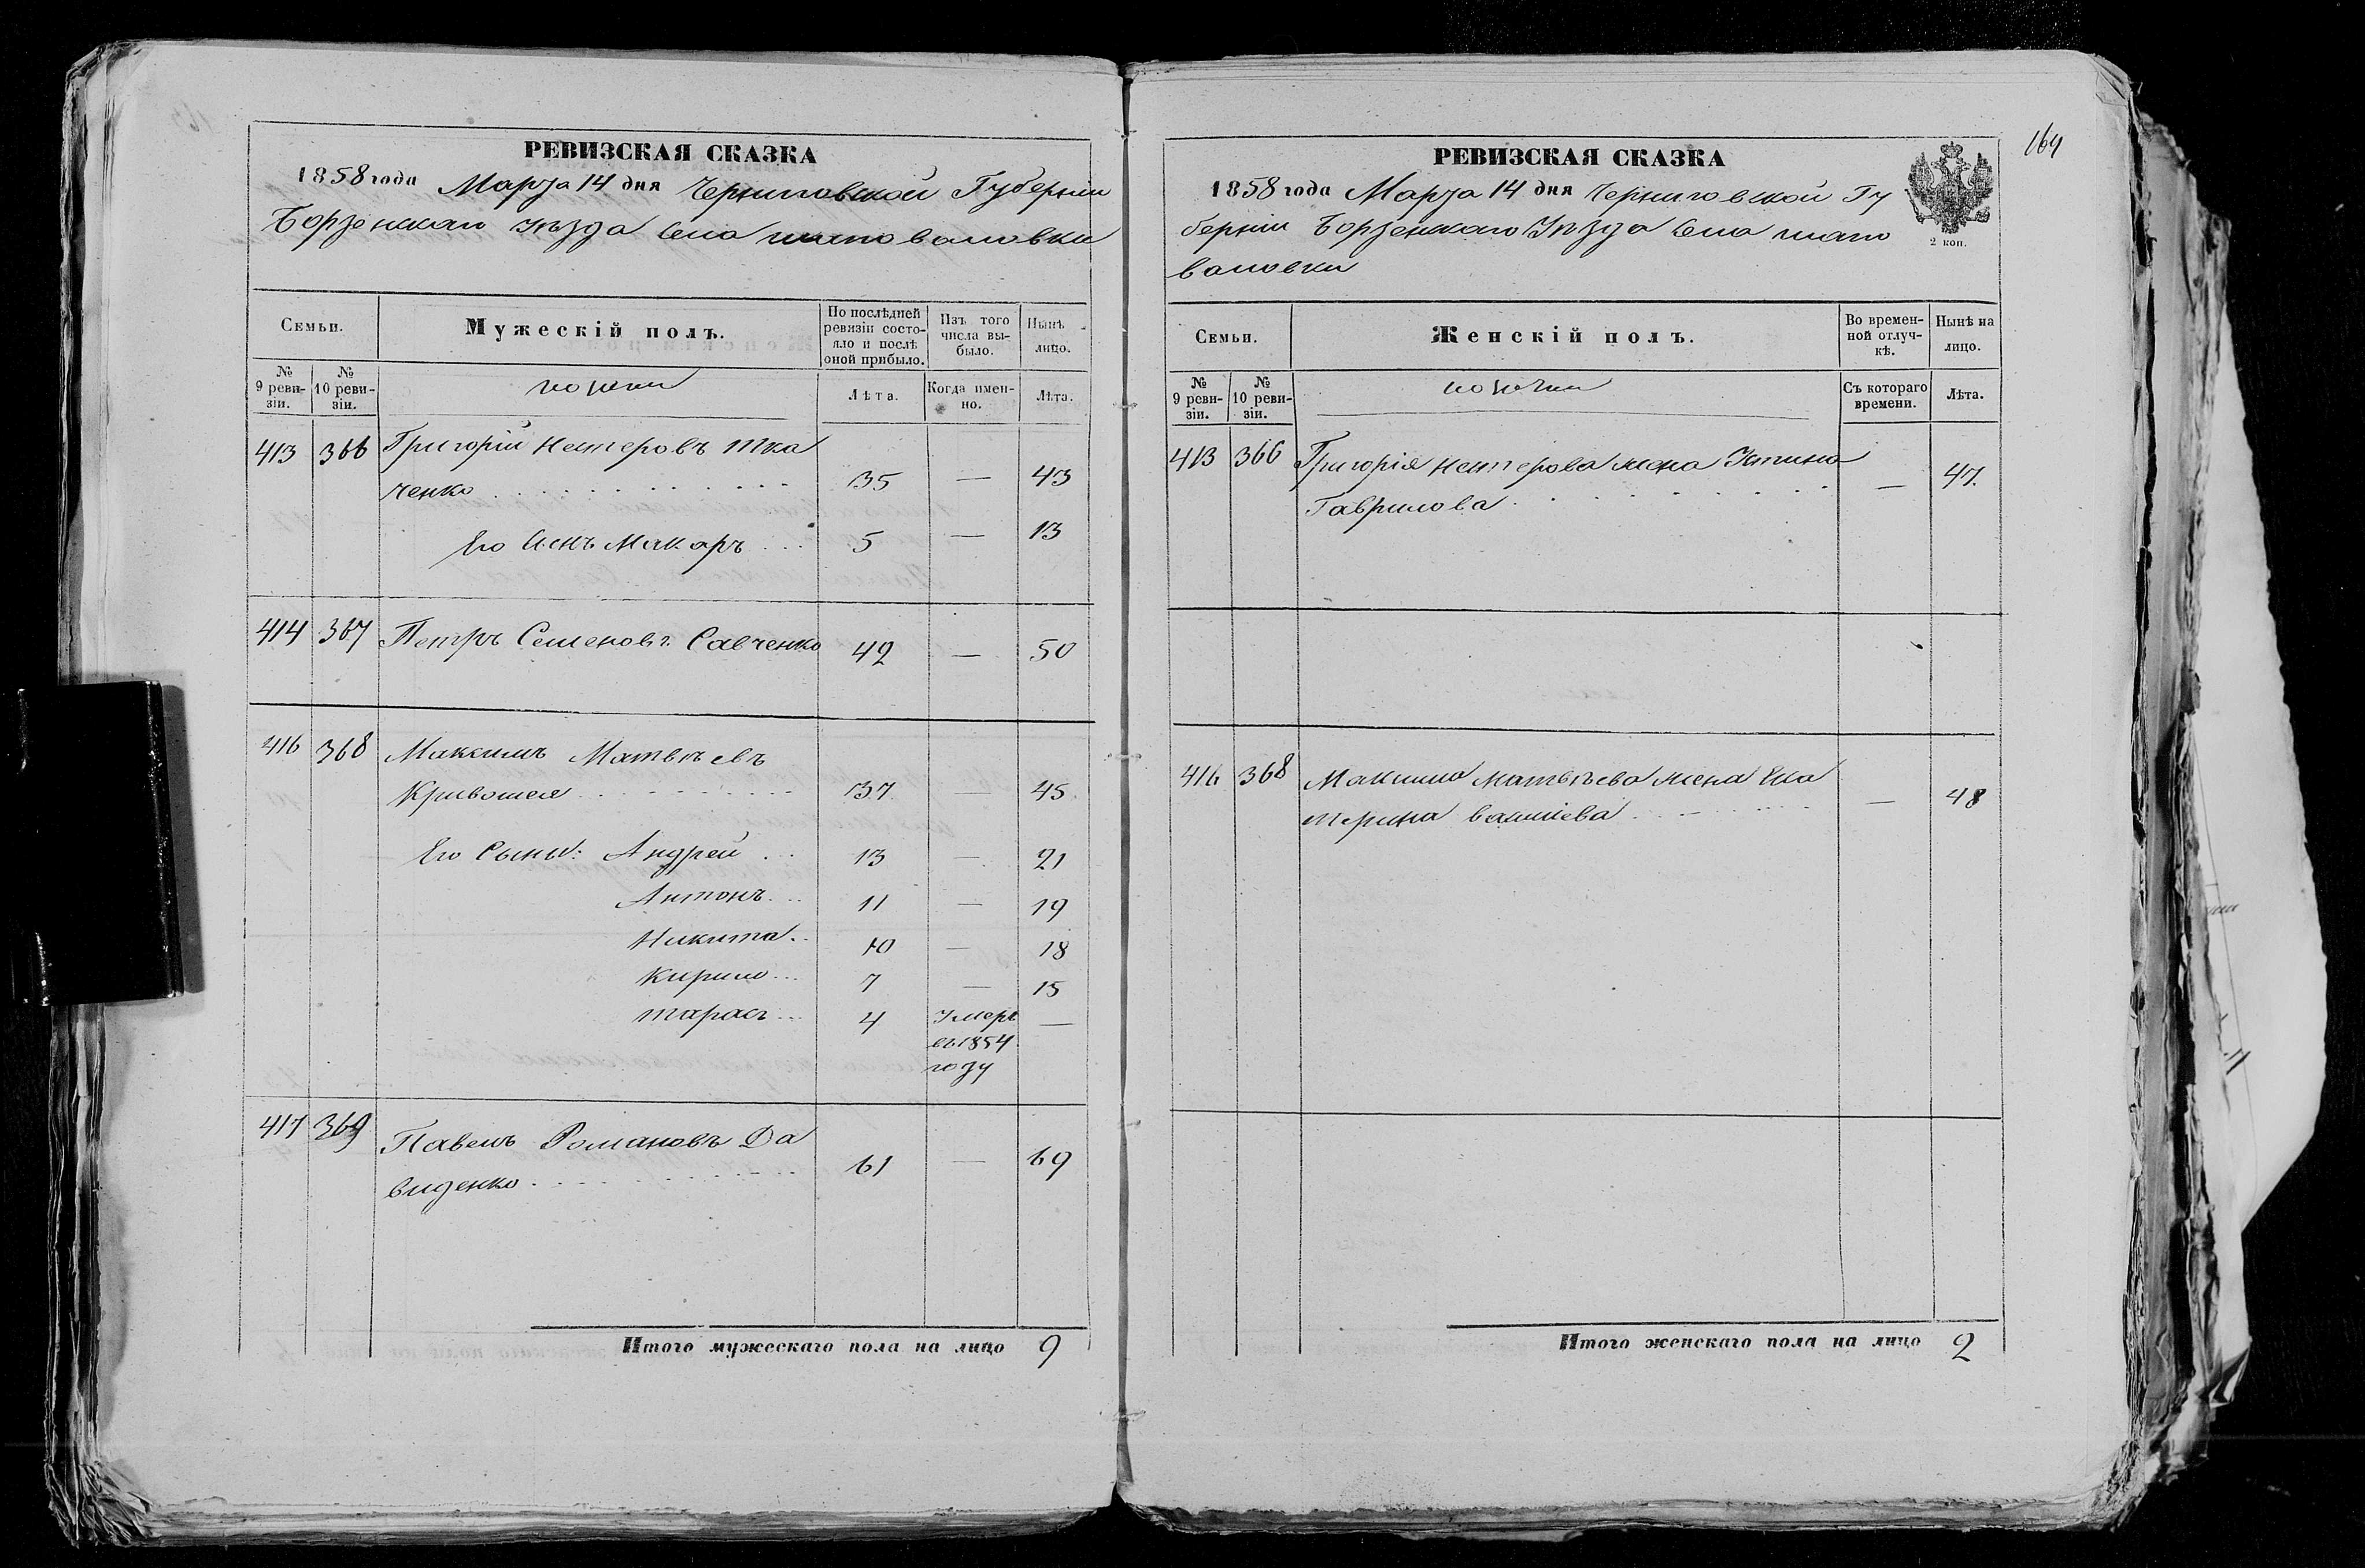 РЕВИЗСКАЯ СКАЗКА
1858 года Марта 14 дня Черниговской Губерніи
Борзенскаго Уѣзда Села Шаповаловки
Семьи.
Мужескій полъ.
По послѣдней ревизіи состояло и послѣ оной прибыло.
Изъ того числа выбыло.
Нынѣ на лицо.
№ 9 ревизіи.
№ 10 ревизіи.
козаки
Лѣта.
Когда именно.
Лѣта.
413 366 Григорій Нестеровъ Тка
ченко 35 — 43
Его Сынъ Макаръ 5 — 13
414 367 Петръ Семеновъ Савченко 42 — 50
416 368 Максимъ Матвѣевъ
Кривошея 37 — 45
Его Сыны: Андрей 13 — 21
Антонъ 11 — 19
Никита 10 — 18
Кирило 7 — 15
Тарасъ 4 Умеръ —
въ 1854
году
417 369 Павелъ Романовъ Да
виденко 61 — 69
Итого мужескаго пола на лицо 9
164
РЕВИЗСКАЯ СКАЗКА
1858 года Марта 14 дня Черниговской Гу
берніи Борзенскаго Уѣзда Села Шапо
валовки
2 коп.
Семьи.
Женскій полъ.
Во временной отлучкѣ.
Нынѣ на лицо.
№ 9 ревизіи.
№ 10 ревизіи.
козачки
Съ котораго времени.
Лѣта.
413 366 Григорія Нестерова жена Устина
Гаврилова — 47
416 368 Максима Матвѣева жена Ека
терина — 48
Итого женскаго пола на лицо 2